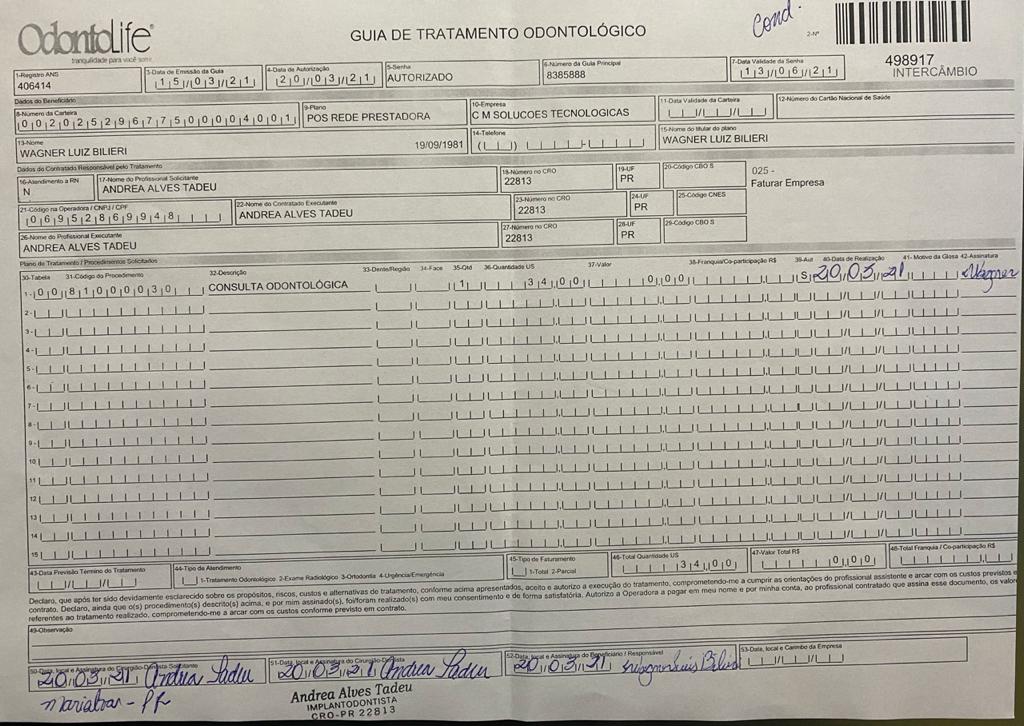 OdontoLife
tranquilidade para você sorrir
GUIA DE TRATAMENTO ODONTOLÓGICO
Cond.
2-Nº
498917
INTERCÂMBIO
1-Registro ANS
406414
3-Data de Emissão da Guia
15/03/21
4-Data de Autorização
20/03/21
5-Senha
AUTORIZADO
6-Número da Guia Principal
8385888
7-Data Validade da Senha
13/06/21
Dados do Beneficiário
8-Número da Carteira
00202529677500004001
9-Plano
POS REDE PRESTADORA
10-Empresa
C M SOLUCOES TECNOLOGICAS
11-Data Validade da Carteira
12-Número do Cartão Nacional de Saúde
13-Nome
WAGNER LUIZ BILIERI 19/09/1981
14-Telefone
15-Nome do titular do plano
WAGNER LUIZ BILIERI
Dados do Contratado Responsável pelo Tratamento
16-Atendimento a RN
N
17-Nome do Profissional Solicitante
ANDREA ALVES TADEU
18-Número no CRO
22813
19-UF
PR
20-Código CBO S
025 -
Faturar Empresa
21-Código na Operadora / CNPJ / CPF
06952869948
22-Nome do Contratado Executante
ANDREA ALVES TADEU
23-Número no CRO
22813
24-UF
PR
25-Código CNES
26-Nome do Profissional Executante
ANDREA ALVES TADEU
27-Número no CRO
22813
28-UF
PR
29-Código CBO S
Plano de Tratamento / Procedimentos Solicitados
30-Tabela 31-Código do Procedimento 32-Descrição 33-Dente/Região 34-Face 35-Qtd 36-Quantidade US 37-Valor 38-Franquia/Co-participação R$ 39-Aut 40-Data de Realização 41- Motivo da Glosa 42-Assinatura
1- 00 81000030 CONSULTA ODONTOLÓGICA 1 34,00 0,00 S 20/03/21 Wagner
2-
3-
4-
5-
6-
7-
8-
9-
10
11
12
13
14
15
43-Data Previsão Término do Tratamento
44-Tipo de Atendimento
1-Tratamento Odontológico 2-Exame Radiológico 3-Ortodontia 4-Urgência/Emergência
45-Tipo de Faturamento
1-Total 2-Parcial
46-Total Quantidade US
34,00
47-Valor Total R$
0,00
48-Total Franquia / Co-participação R$
Declaro, que após ter sido devidamente esclarecido sobre os propósitos, riscos, custos e alternativas de tratamento, conforme acima apresentados, aceito e autorizo a execução do tratamento, comprometendo-me a cumprir as orientações do profissional assistente e arcar com os custos previstos e
contrato. Declaro, ainda que o(s) procedimento(s) descrito(s) acima, e por mim assinado(s), foi/foram realizado(s) com meu consentimento e de forma satisfatória. Autorizo a Operadora a pagar em meu nome e por minha conta, ao profissional contratado que assina esse documento, os valor
referentes ao tratamento realizado, comprometendo-me a arcar com os custos conforme previsto em contrato.
49-Observação
50-Data, local e Assinatura do Cirurgião-Dentista Solicitante
20/03/21 Andrea Tadeu
51-Data, local e Assinatura do Cirurgião-Dentista
20/03/21 Andrea Tadeu
52-Data, local e Assinatura do Beneficiário / Responsável
20/03/21
53-Data, local e Carimbo da Empresa
Andrea Alves Tadeu
IMPLANTODONTISTA
CRO-PR 22813